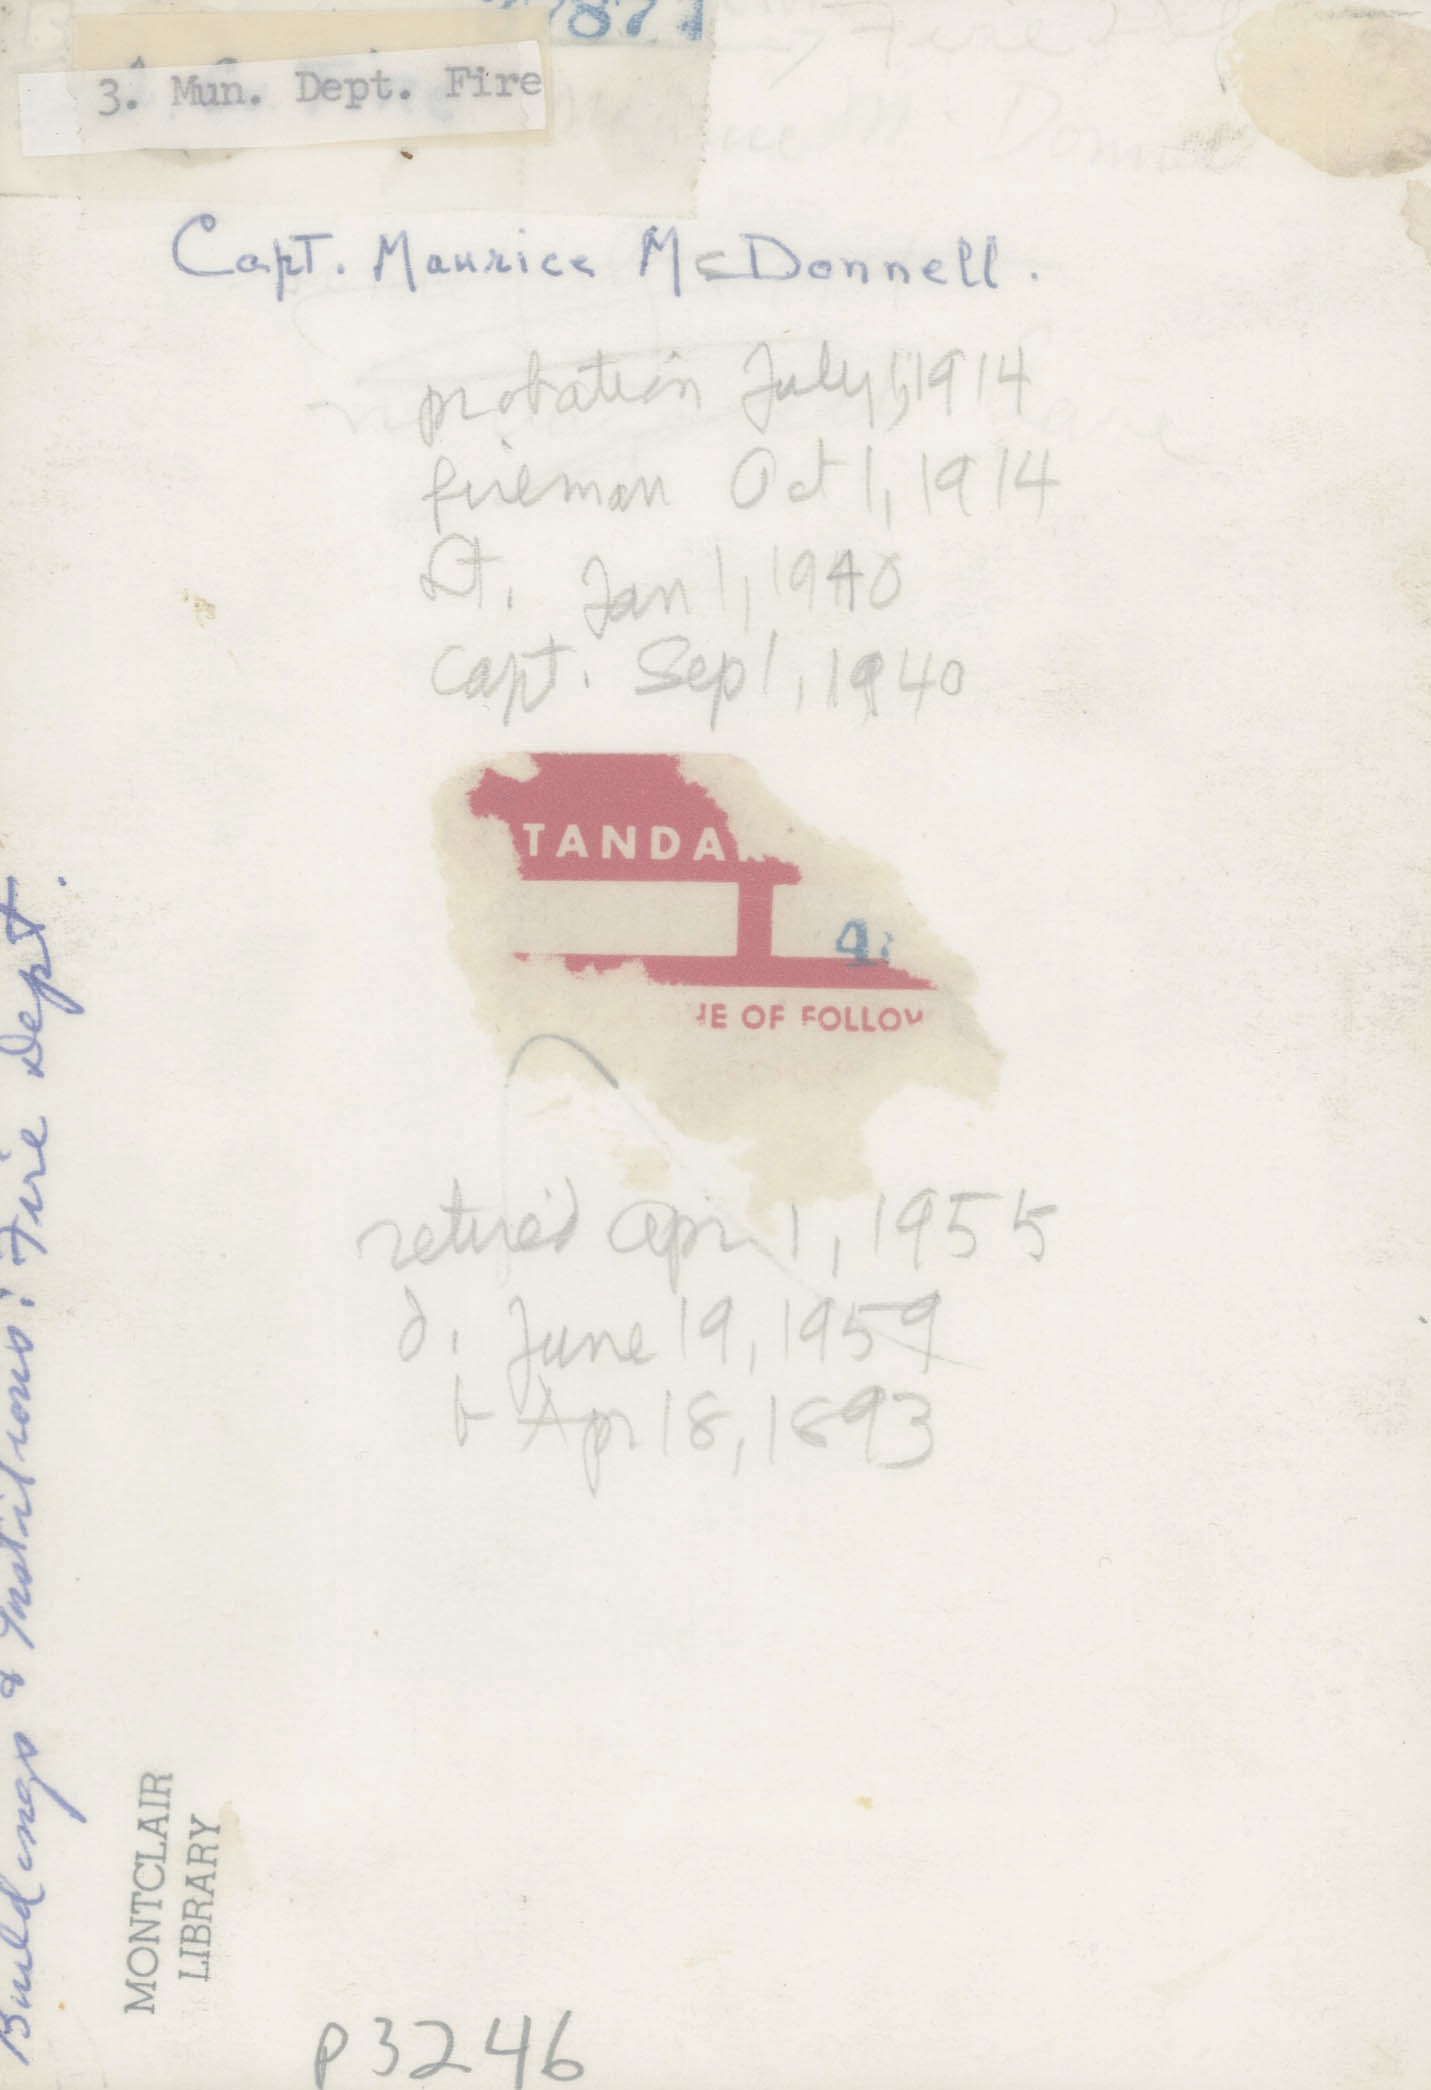 3. Mun. Dept. Fire
Capt. Maurice McDonnell.
probation July 1, 1914
fireman Oct 1, 1914
Lt. Jan 1, 1940
Capt. Sep 1, 1940
TANDA
4
OF FOLLOW
retired Apr 1, 1955
d. June 19, 1959
b Apr 18, 1893
Buildings & Institutions: Fire Dept.
MONTCLAIR
LIBRARY
P3246